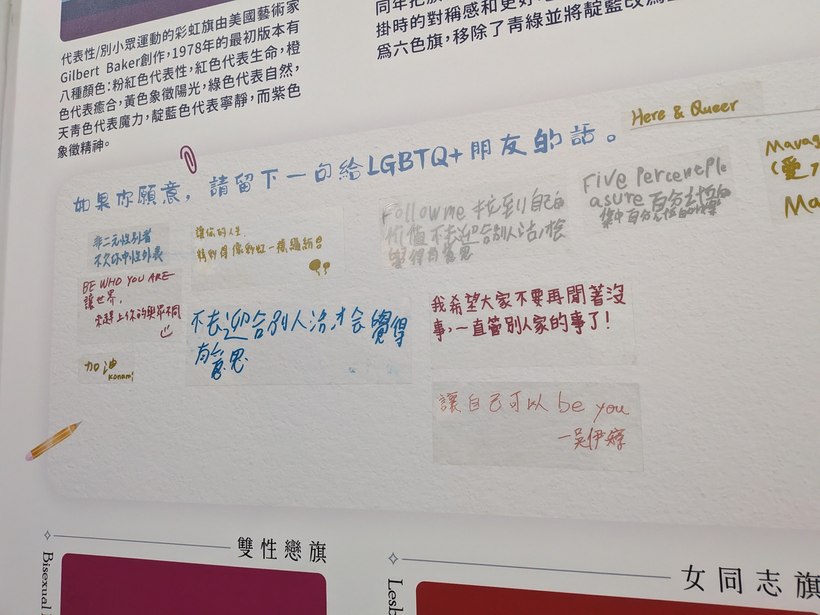 代表性/別小眾運動的彩虹旗由美國藝術家
Gilbert Baker創作，1978年的最初版本有
八種顏色：粉紅色代表性，紅色代表生命，橙
色代表癒合，黃色象徵陽光，綠色代表自然，
天青色代表魔力，靛藍色代表寧靜，而紫色
象徵精神。
掛時的對稱感和更好
為六色旗，移除了青綠並將靛藍改為
如果你願意，請留下一句給LGBTQ+朋友的話。
Here & Queer
非二元性別者
不欠你中性外表
讓你的人生
精彩得像彩虹一樣繽紛!
Follow me 找到自己的
价值不去迎合别人活,才会
覺得有意思
Five Percenteple
asure 百分之五的
集中百分之五的快樂
(愛
Ma
BE WHO YOU ARE
讓世界，
來趕上你的與眾不同
不去迎合別人活,才会覺得
有意思
我希望大家不要再閒著沒
事，一直管別人家的事了！
加油
Konami
讓自己可以 be you
—吳伊婷
雙性戀旗
Bisexual
女同志旗
Lesb